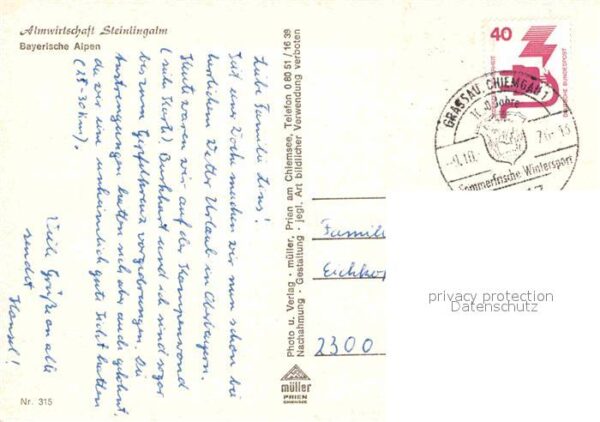 Almwirtschaft Steinlingalm
Bayerische Alpen
Liebe Familie Lins!
Seit einer Woche machen wir nun schon bei
herrlichem Wetter Urlaub in Oberbayern.
Heute waren wir auf der Kampenwand
(siehe Karte). Burkhart und ich sind sogar
bis zum Gipfelkreuz vorgedrungen. Die
Anstrengungen hatten sich aber auch gelohnt,
da wir eine unheimlich gute Sicht hatten
(25-30 km).
Viele Grüße an alle
sendet
Hansel!
Nr. 315
Photo u. Verlag · müller, Prien am Chiemsee, Telefon 0 80 51 / 16 39
Nachahmung · Gestaltung · jegl. Art bildlicher Verwendung verboten
müller
PRIEN
CHIEMSEE
40
DEUTSCHE BUNDESPOST
GRASSAU, CHIEMGAU 1
Jahre
76-15
Sommerfrische Wintersport
Famili
Eichko
2300
privacy protection
Datenschutz